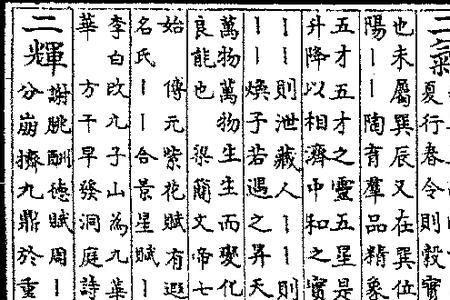 二氣
夏行春令則穀實
也未屬巽辰又在巽位
陽｜｜陶育羣品精象
五才五才之靈五星是
升降以相濟中和之實
｜｜則泄藏人｜｜則
｜｜煥子若遇之昇天
萬物萬物生生而變化
良能也 梁簡文帝七
始 傅元紫花賦有遐
名氏｜｜合景星賦｜
李白改九子山為九華
華 方干早發洞庭詩
二輝
謝朓酬德賦周｜
分崩擠九鼎於重